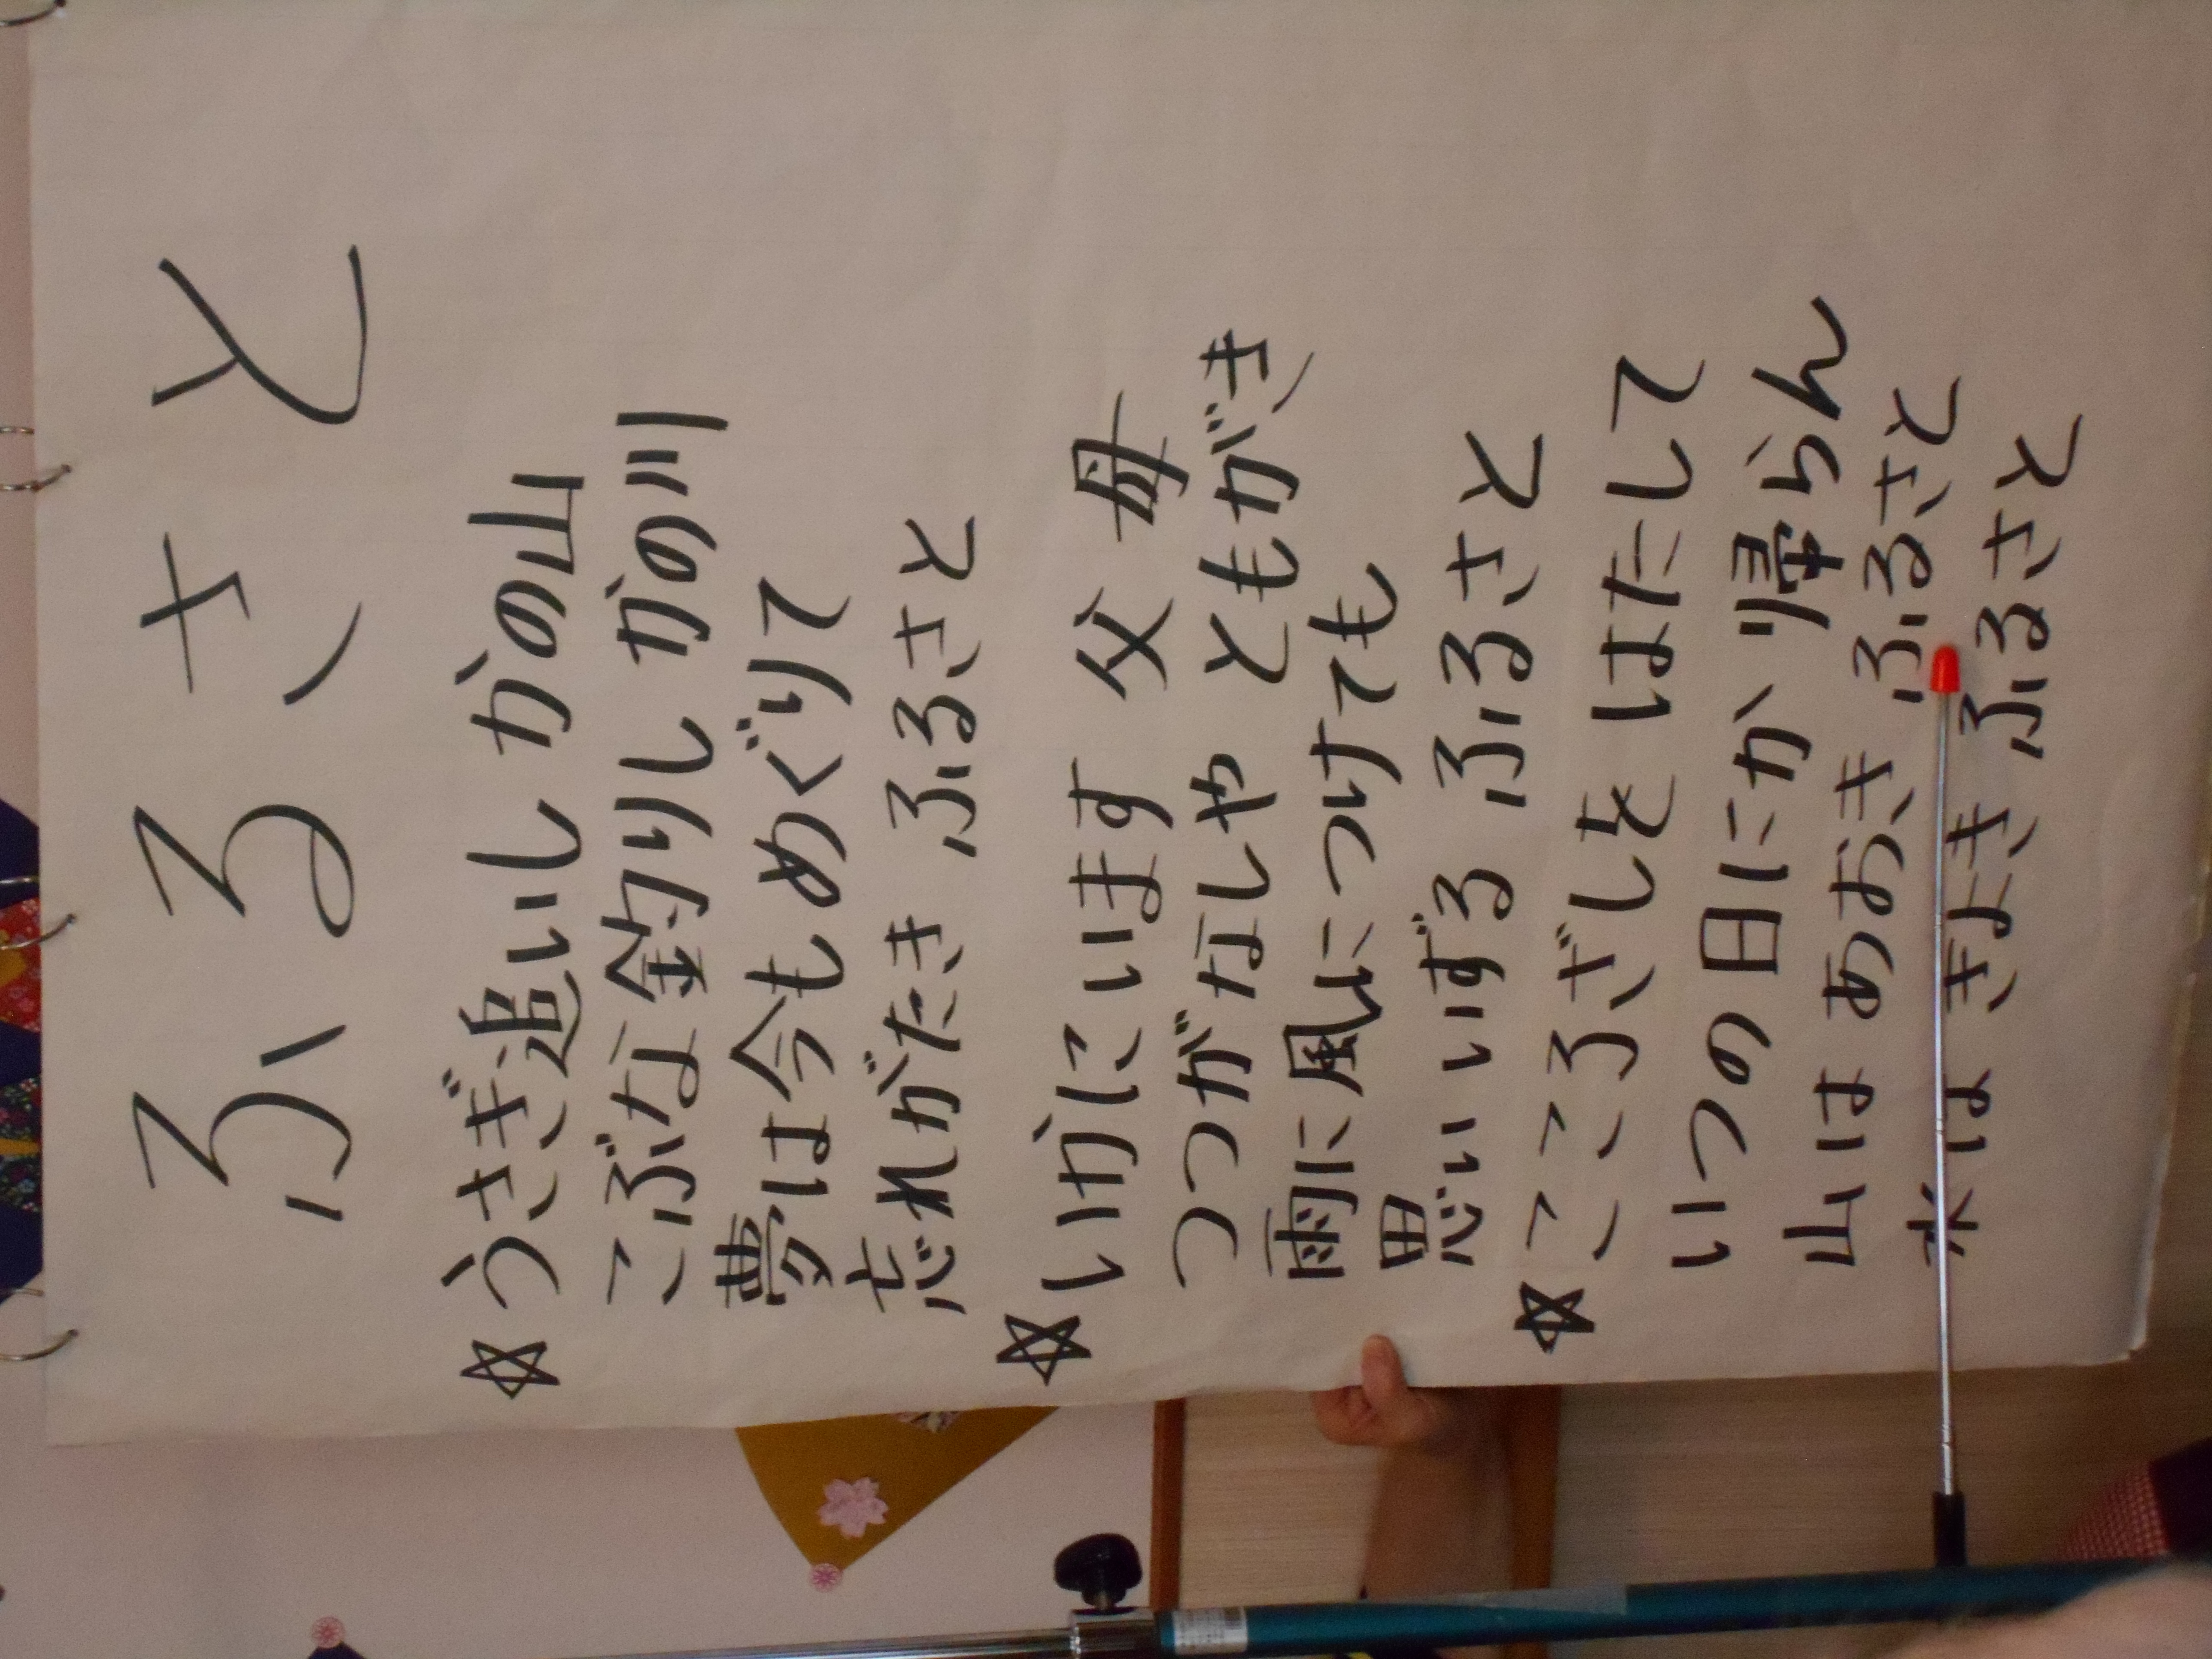 ふるさと
☆うさぎ追いし かの山
こぶな釣りし かの川
夢は今もめぐりて
忘れがたき ふるさと
☆いかにいます 父母
つつがなしや ともがき
雨に風につけても
思いいずる ふるさと
☆こころざしを はたして
いつの日にか 帰らん
山は あおき ふるさと
水は きよき ふるさと